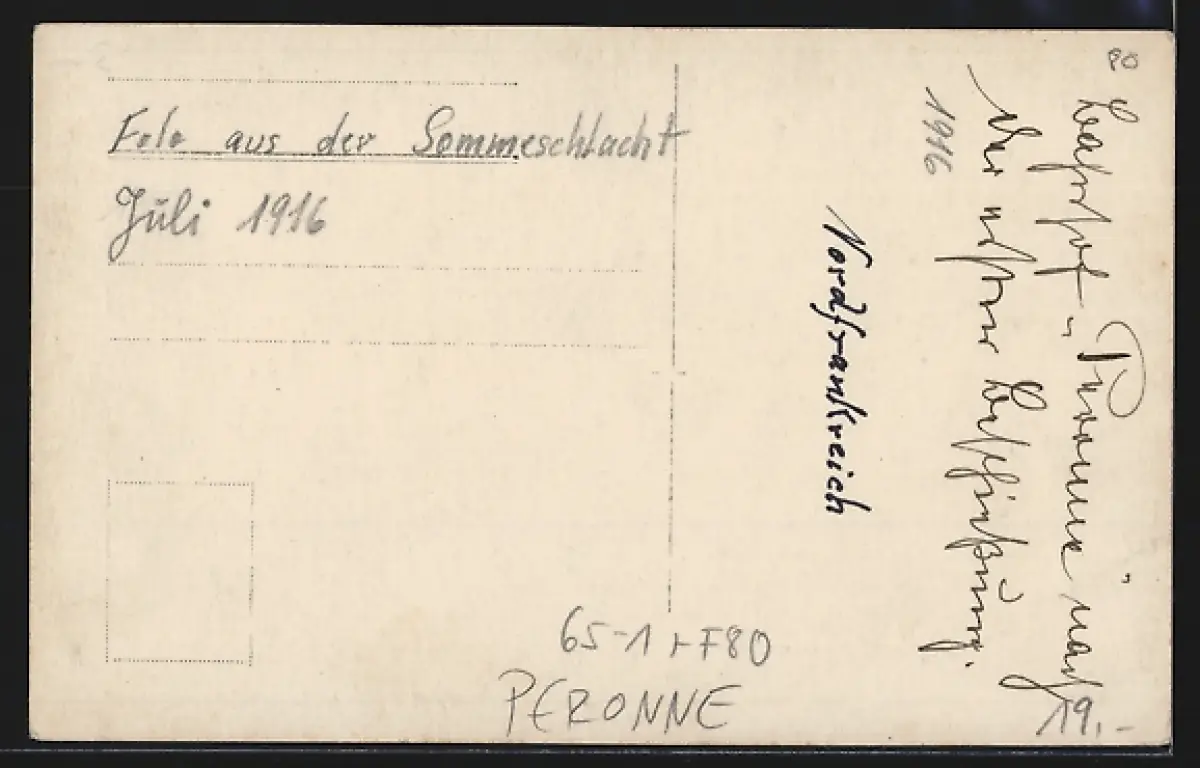 Foto aus der Sommeschlacht
Juli 1916
80
Bahnhof „Peronne" nach
der ersten Beschießung.
1916
Nordfrankreich
65-1 + F80
PERONNE
19.-